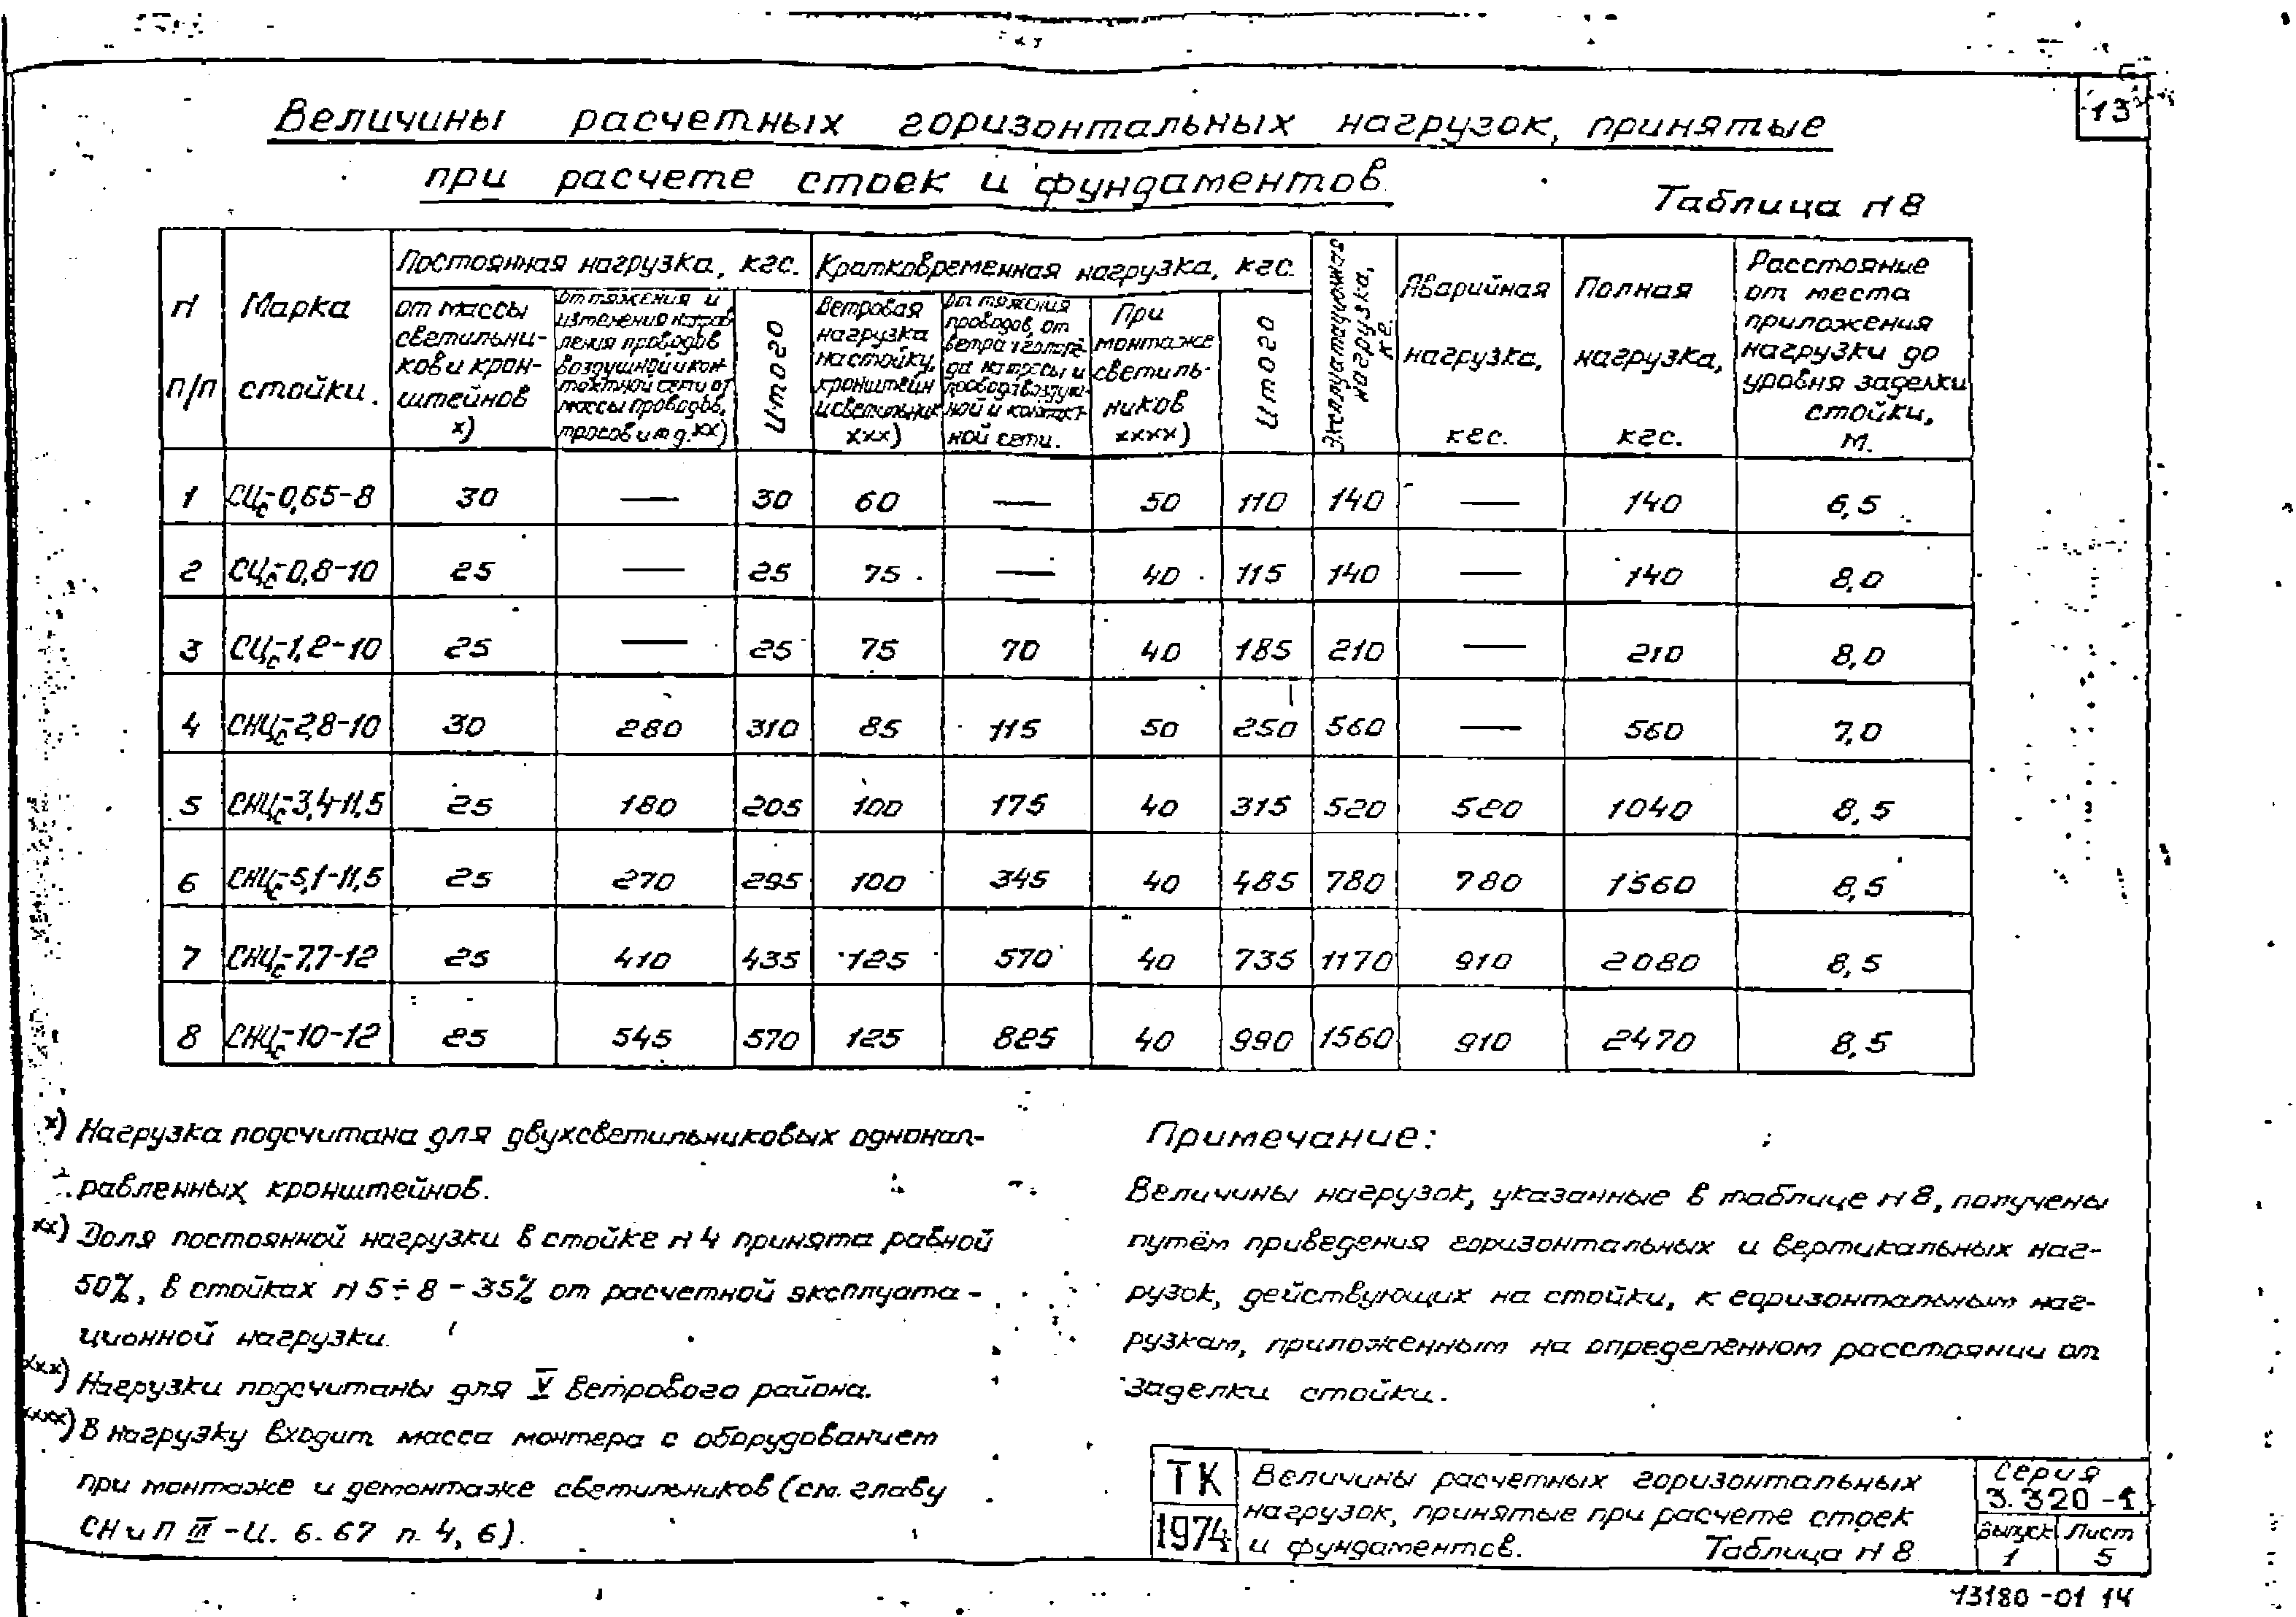 13
Величины расчетных горизонтальных нагрузок, принятые
при расчете стоек и фундаментов
Таблица N 8
N п/п
Марка стойки.
Постоянная нагрузка, кгс.
от массы светильников и кронштейнов х)
От тяжения и изменения направления проводов воздушной и контактной сети от массы проводов, тросов и т д. хх)
Итого
Кратковременная нагрузка, кгс.
Ветровая нагрузка на стойку, кронштейн и светильник ххх)
От тяжения проводов, от ветра и гололёда на тросы и провода воздушной и контактной сети.
При монтаже светильников хххх)
Итого
Эксплуатационная нагрузка, кг.
Аварийная нагрузка, кгс.
Полная нагрузка, кгс.
Расстояние от места приложения нагрузки до уровня заделки стойки, м.
1 СЦс-0,65-8 30 — 30 60 — 50 110 140 — 140 6,5
2 СЦс-0,8-10 25 — 25 75 — 40 115 140 — 140 8,0
3 СЦс-1,2-10 25 — 25 75 70 40 185 210 — 210 8,0
4 СНЦс-2,8-10 30 280 310 85 115 50 250 560 — 560 7,0
5 СНЦс-3,4-11,5 25 180 205 100 175 40 315 520 520 1040 8,5
6 СНЦс-5,1-11,5 25 270 295 100 345 40 485 780 780 1560 8,5
7 СНЦс-7,7-12 25 410 435 125 570 40 735 1170 910 2080 8,5
8 СНЦс-10-12 25 545 570 125 825 40 990 1560 910 2470 8,5
х) Нагрузка подсчитана для двухсветильниковых однонап-
равленных кронштейнов.
хх) Доля постоянной нагрузки в стойке N 4 принята равной
50%, в стойках N 5÷8 - 35% от расчетной эксплуата-
ционной нагрузки.
ххх) Нагрузки подсчитаны для V ветрового района.
хххх) В нагрузку входит масса монтера с оборудованием
при монтаже и демонтаже светильников (см. главу
СНиП III -И. 6. 67 п. 4, 6).
Примечание:
Величины нагрузок, указанные в таблице N 8, получены
путём приведения горизонтальных и вертикальных наг-
рузок, действующих на стойки, к горизонтальным наг-
рузкам, приложенным на определенном расстоянии от
заделки стойки.
ТК
1974
Величины расчетных горизонтальных
нагрузок, принятые при расчете стоек
и фундаментов. Таблица N 8
Серия
3.320-1
Выпуск 1
Лист 5
13180-01 14